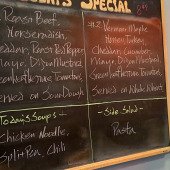 Special
Roast Beef,
Horseradish,
Cheddar, Roast Red Pepper
Mayo, Dijon Mustard
Greenleaf, Tomatoes,
Served on SourDough
#2. Vermont Maple
Honey Turkey,
Cheddar, Cucumber,
Mayo, Dijon Mustard
Greenleaf, Tomatoes,
Served on Whole Wheat
Today's Soups -
Chicken Noodle,
Split Pea, Chili
- Side Salad -
Pasta